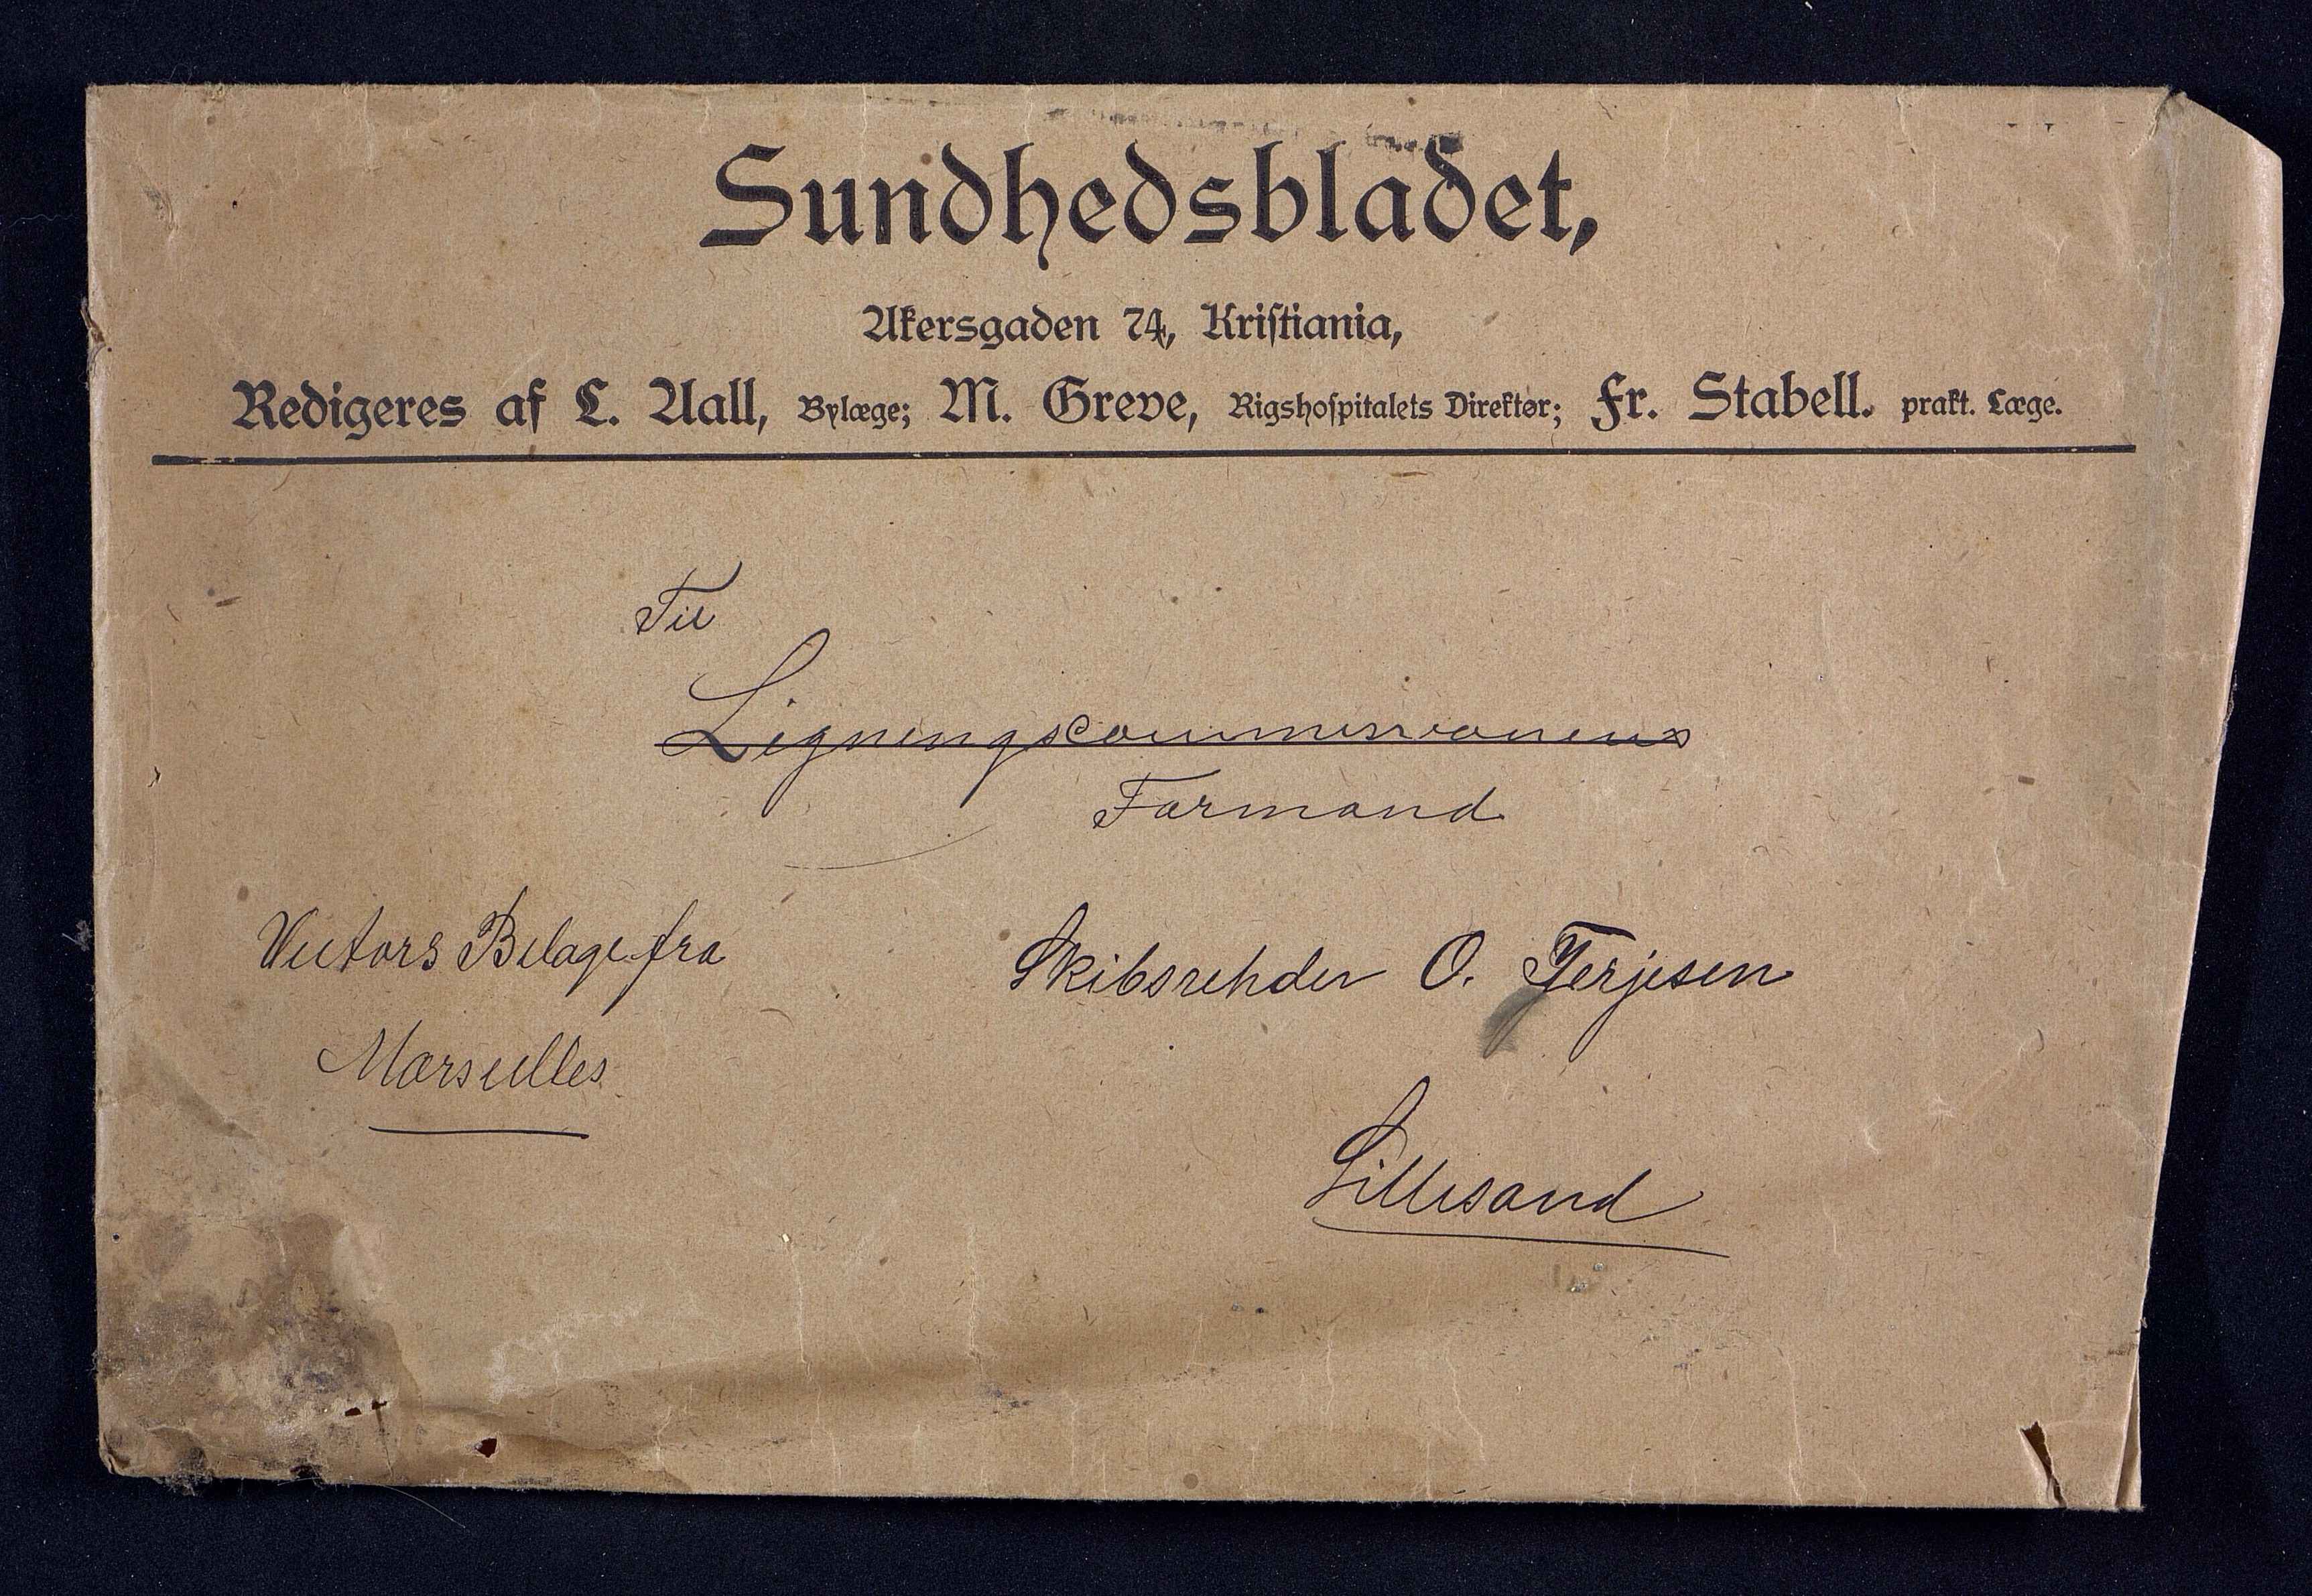 Sundhedsbladet,
Akersgaden 74, Kristiania,
Redigeres af L. Aall, Bylæge; M. Greve, Rigshospitalets Direktør; Fr. Stabell. prakt. Læge.
Til
Ligningscommissionens
Formand
Victors Belage fra
Marseilles
Skibsrehder O. Terjesen
Lillesand